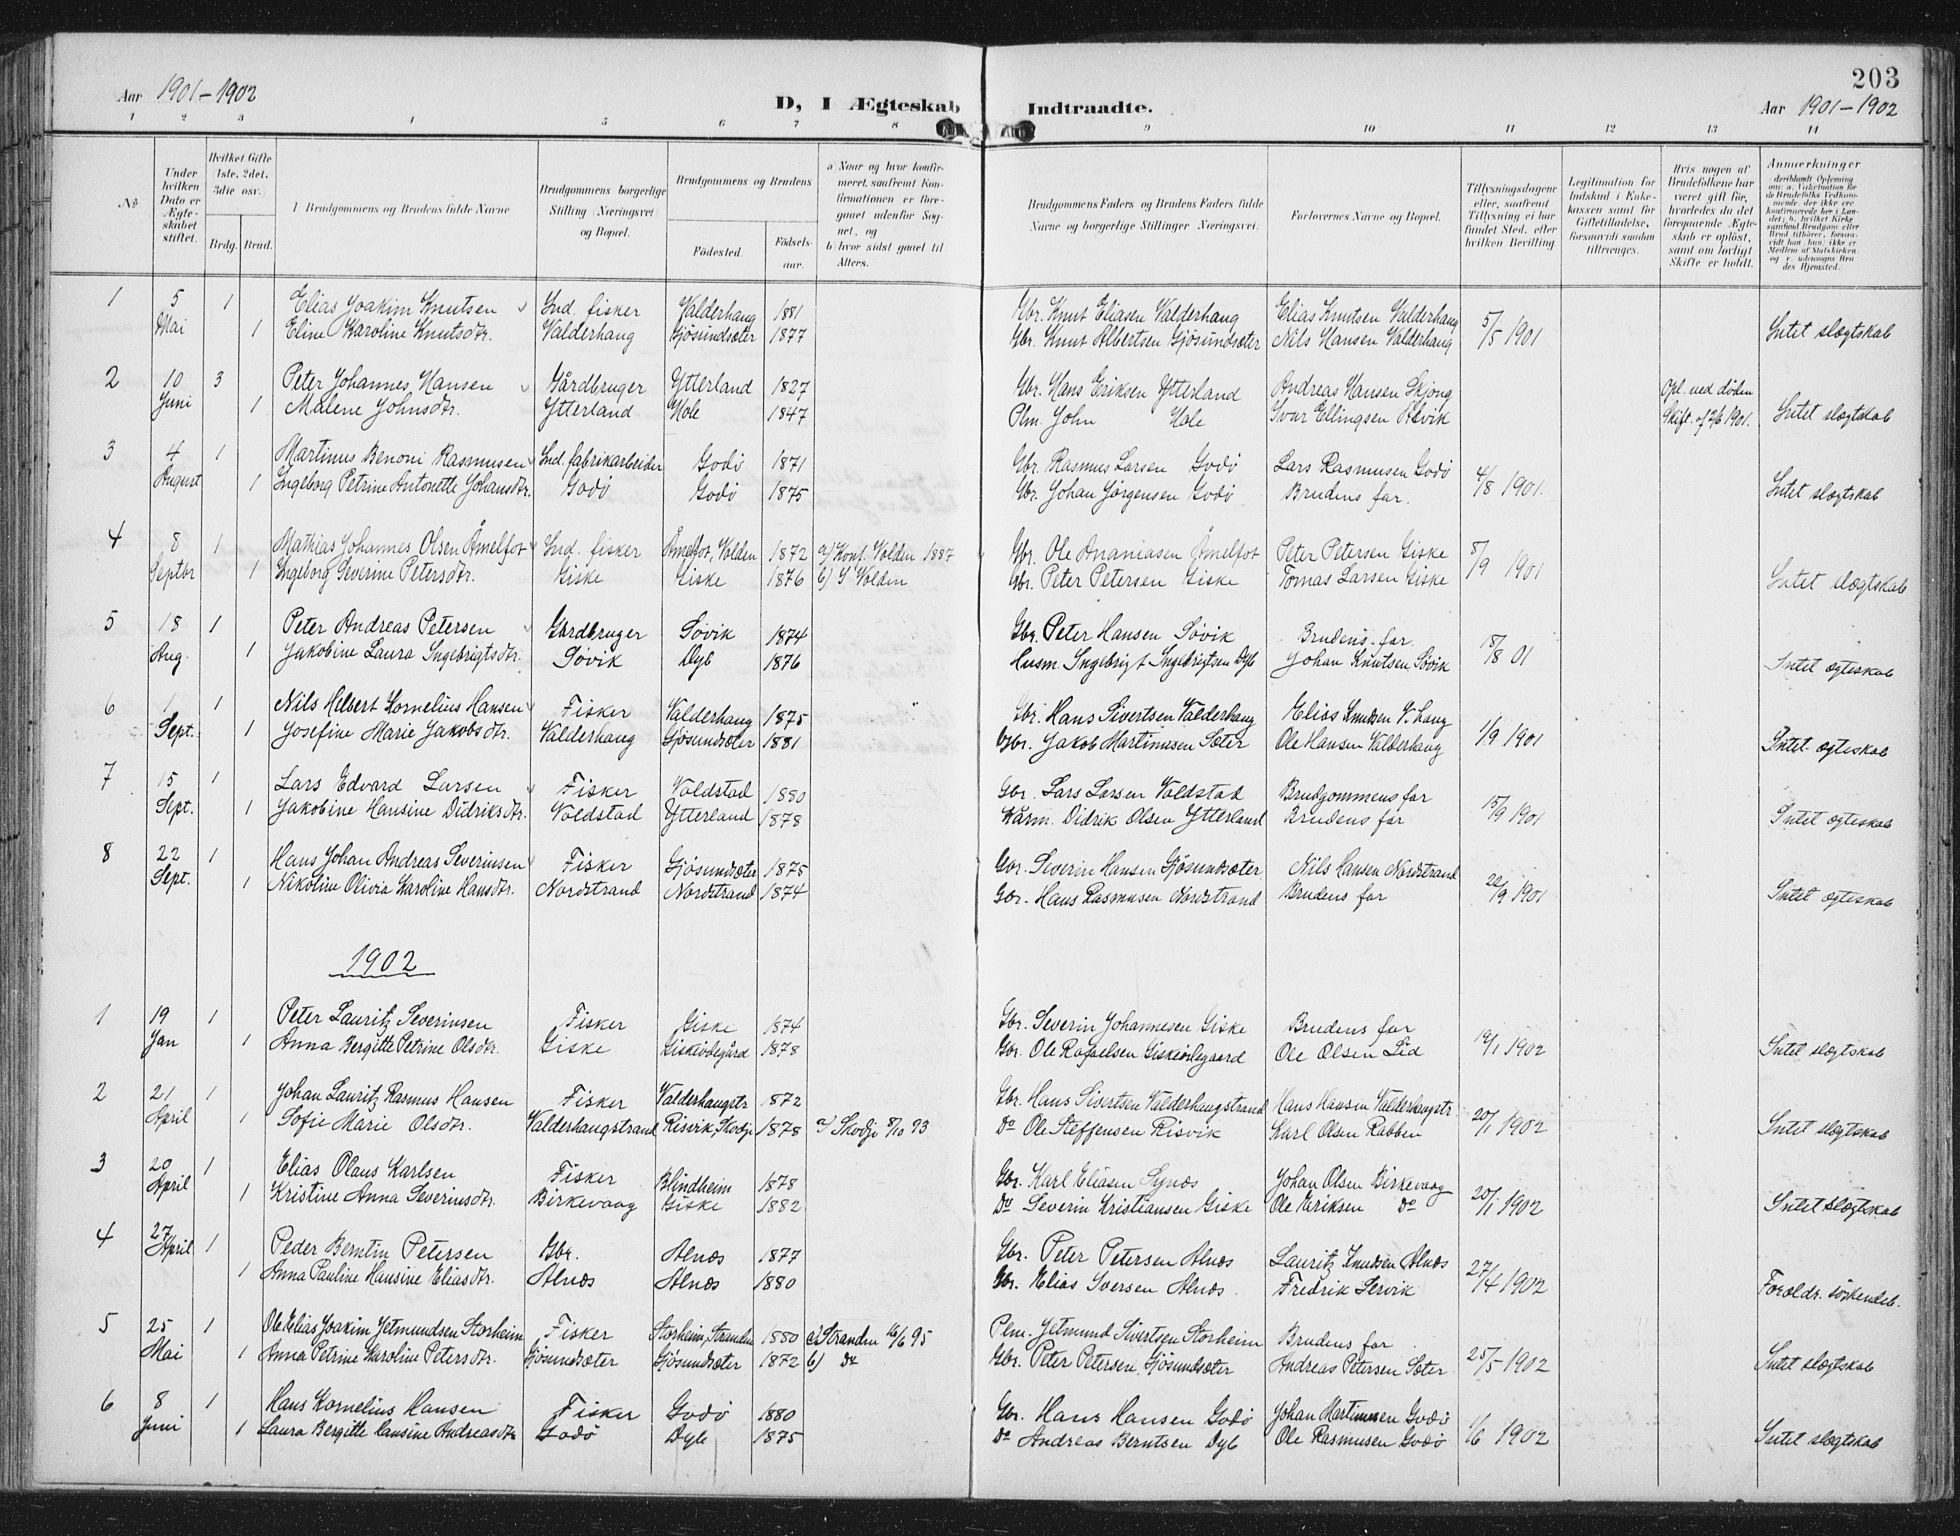 203
Aar 1901-1902
D, I Ægteskab Indtraadte.
Aar 1901-1902
1 2 3 4 5 6 7 8 9 10 11 12 13 14
No
Under hvilken Dato er Ægteskabet stiftet.
Hvilket Gifte (1ste, 2det, 3die osv.)
Brdg. Brud.
1 Brudgommens og Brudens fulde Navne
Brudgommens borgerlige Stilling (Næringsvei) og Bopæl.
Brudgommens og Brudens
Fødested.
Fødselsaar.
a Naar og hvor konfirmeret, saafremt Konfirmationen er foregaaet udenfor Sognet, og
b hvor sidst gaaet til Alters.
Brudgommens Faders og Brudens Faders fulde Navne og borgerlige Stillinger (Næringsvei.
Forlovernes Navne og Bopæl.
Tillysningsdagene eller, saafremt Tillysning ei har fundet Sted, efter hvilken Bevilling
Legitimation for Indskud i Enkekassen samt for Giftetilladelse, forsaavidt saadan tiltrænges.
Hvis nogen af Brudefolkene har været gift før, hvorledes da det foregaaende Ægteskab er opløst, samt om lovligt Skifte er holdt.
Anmærkninger
1 5 1 Elias Joakim Knutsen Ind. fisker Valderhaug 1881 Gbr. Knut Eliasen Valderhaug Elias Knutsen Valderhaug 5/5 1901 Intet slægtskab
Mai 1 Eline Karoline Knutsdtr. Valderhaug Gjösundsæter 1877 Gbr. Knut Albertsen Gjösundsæter Nils Hansen Valderhaug
2 10 3 Peter Johannes Hansen Gårdbruger Ytterland 1827 Gbr. Hans Eriksen Ytterland Andreas Hansen Skjong Opl. ved döden
Juni 1 Malene Johnsdtr. Ytterland Hole 1847 Plm. John Hole Ivar Ellingsen Alvik Skift. 1901. Intet slægtskab
3 4 1 Martinus Benoni Rasmusen Ind. fabrikarbeider Godö 1871 Gbr. Rasmus Larsen Godö Lars Rasmusen Godö 4/8 1901. Intet slægtskab
August 1 Ingeborg Petrine Antonette Johansdtr. Godö Godö 1875 Gbr. Johan Jörgensen Godö Brudens far.
4 8 1 Mathias Johannes Olsen Åmelfot Ind. fisker Åmelfot, Volden 1872 a) Konf. Volden 1887 Gbr. Ole Ananiasen Åmelfot Peter Petersen Giske 8/9 1901 Intet slægtskab
Septbr 1 Ingeborg Severine Petersdtr. Giske Giske 1876 b) I Volden Gbr. Peter Petersen Giske Tomas Larsen Giske
5 18 1 Peter Andreas Petersen Gårdbruger Søvik 1874 Gbr. Peter Hansen Søvik Brudens far. 18/8 01 Intet ægteskab
Aug. 1 Jakobine Laura Ingebrigtsdtr. Søvik Dyb 1876 Husm. Ingebrigt Ingebrigtsen Dyb Johan Knutsen Søvik
6 1 1 Nils Helbert Kornelius Hansen Fisker Valderhaug 1875 Gbr. Hans Sivertsen Valderhaug Elias Knudsen V. haug 1/9 1901 Intet ægteskab
Sept. 1 Josefine Marie Jakobsdtr. Valderhaug Gjösundsæter 1881 Gbr. Jakob Martinusen Sæter Ole Hansen Valderhaug
7 15 1 Lars Edvard Larsen Fisker Valdstad 1880 Gbr. Lars Larsen Valdstad Brudgommens far 15/9 1901 Intet ægteskab
Sept. 1 Jakobine Hansine Didriksdtr. Valdstad Ytterland 1878 Didrik Olsen Ytterland Brudens far
8 22 1 Hans Johan Andreas Severinsen Fisker Gjösundsæter 1875 Gbr. Severin Hansen Gjösundsæter Nils Hansen Nordstrand 22/9 1901 Intet ægteskab
Sept. 1 Nikoline Olivia Karoline Hansdtr. Nordstrand Nordstrand 1874 Gbr. Hans Rasmusen Nordstrand Brudens far
1902
1 19 1 Peter Lauritz Severinsen Fisker Giske 1874 Gbr. Severin Johannesen Giske Brudens far 19/1 1902 Intet slægtskab
Jan 1 Anna Bergitte Petrine Olsdtr. Giske Giskeødegård 1878 Gbr. Ole Rafaelsen Giskeødegaard Ole Olsen Lid
2 21 1 Johan Lauritz Rasmus Hansen Fisker Valderhaugstr 1872 Gbr. Hans Sivertsen Valderhaugstrand Hans Hansen Valderhaugstr. 20/1 1902 Intet slægtskab
April 1 Sofie Marie Olsdtr. Valderhaugstrand Risvik, Skodje 1878 a) Skodje 8/10 93 Do Ole Steffensen Risvik Karl Olsen Rabben
3 20 1 Elias Olaus Karlsen Fisker Blindheim 1878 Gbr. Karl Eliasen Synes Johan Olsen Birkevaag 20/1 1902 Intet slægtskab
April 1 Kristine Anna Severinsdtr. Birkevaag Giske 1882 Do Severin Kristiansen Giske Ole Eriksen Do
4 27 1 Peder Berntin Petersen Gbr. Alnæs 1877 Gbr. Peter Petersen Alnæs Lauritz Knudsen Alnæs 27/4 1902 Forældr. söskendeb.
April 1 Anna Pauline Hansine Eliasdtr. Alnæs Alnæs 1880 Gbr. Elias Iversen Alnæs. Fredrik Lervik
5 25 1 Ole Elias Joakim Jetmundsen Storheim Fisker Storheim, Stranden 1880 a) Stranden 16/6 95 Plm. Jetmund Sivertsen Storheim Brudens far 25/5 1902 Intet slægtskab
Mai 1 Anna Petrine Karoline Petersdtr. Gjösundsæter Gjösundsæter 1872 b) Do Gbr. Peter Petersen Gjösundsæter Andreas Petersen Sæter
6 8 1 Hans Kornelius Hansen Fisker Godö 1880 Gbr. Hans Hansen Godö Johan Martinusen Godö 1/6 1902 Intet slægtskab
Juni 1 Laura Bergitte Hansine Andreasdtr Godö Dyb 1875 Do Andreas Berntsen Dyb Ole Rasmusen Godö